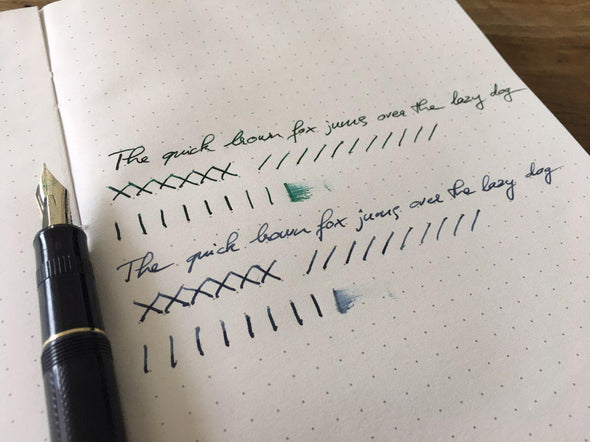 The quick brown fox jums over the lazy dog
The quick brown fox jums over the lazy dog